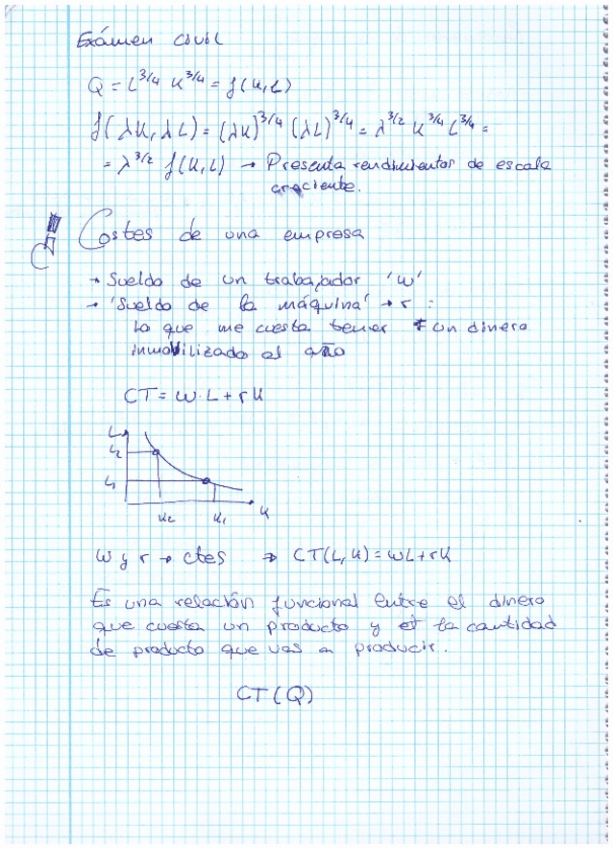 Exámen civil
Q = L^3/4 K^3/4 = f(K,L)
f(λK, λL) = (λK)^3/4 (λL)^3/4 = λ^3/2 K^3/4 L^3/4 =
= λ^3/2 f(K,L) → Presenta rendimientos de escala
creciente.
Costes de una empresa
→ Sueldo de un trabajador 'w'
→ 'Sueldo de la máquina' → r :
Lo que me cuesta tener un dinero
inmovilizado al año
CT = w·L + rK
L
L2
L1
K2 K1 K
w y r → ctes ⇒ CT(L,K) = wL + rK
Es una relación funcional entre el dinero
que cuesta un producto y la cantidad
de producto que vas a producir.
CT(Q)